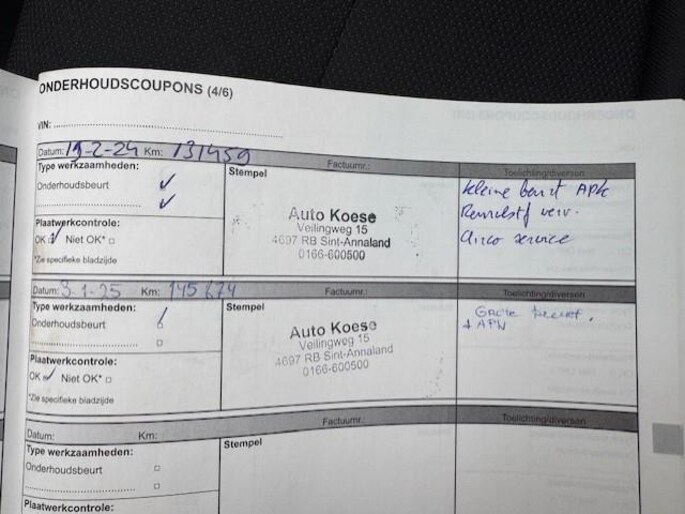 ONDERHOUDSCOUPONS (4/6)
VIN:
Datum: 19-2-24 Km: 131459
Factuurnr.:
Toelichting/diversen
Type werkzaamheden:
Onderhoudsbeurt
Plaatwerkcontrole:
OK Niet OK*
*Zie specifieke bladzijde
Stempel
Auto Koese
Veilingweg 15
4697 RB Sint-Annaland
0166-600500
kleine beurt APK
Remvlstf verv.
Airco service
Datum: 3-1-25 Km: 145874
Factuurnr.:
Toelichting/diversen
Type werkzaamheden:
Onderhoudsbeurt
Plaatwerkcontrole:
OK Niet OK*
*Zie specifieke bladzijde
Stempel
Auto Koese
Veilingweg 15
4697 RB Sint-Annaland
0166-600500
Grote beurt.
+ APK
Datum: Km:
Factuurnr.:
Toelichting/diversen
Type werkzaamheden:
Onderhoudsbeurt
Plaatwerkcontrole:
Stempel